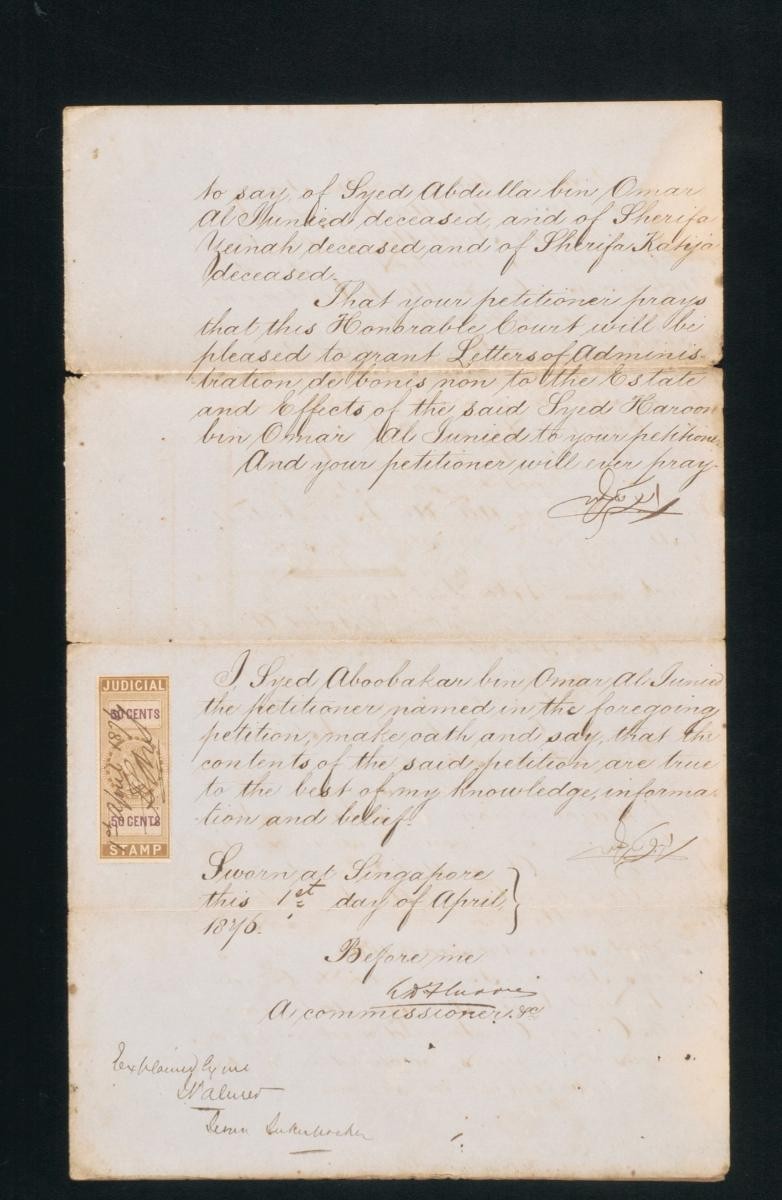 to say, of Syed Abdulla bin Omar
Al Junied deceased, and of Sherifa
Zeinah deceased and of Sherifa Katija
deceased.
That your petitioner prays
that this Honorable Court will be
pleased to grant Letters of Adminis-
tration de bonis non to the Estate
and Effects of the said Syed Haroon
bin Omar Al Junied to your petitioner
And your petitioner will ever pray.
I Syed Aboobakar bin Omar Al Junied
the petitioner named in the foregoing
petition, make oath and say, that the
contents of the said petition are true
to the best of my knowledge, informa-
tion and belief.
JUDICIAL
50 CENTS
1st April 1876
50 CENTS
STAMP
Sworn at Singapore
this 1st day of April,
1876.
Before me
A commissioner. &c
Explained by me